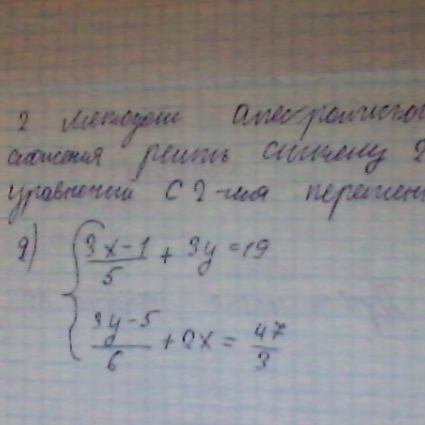 2 Методом алгебраического
сложения решить систему 2
уравнений с 2-мя перемен
2) { (3x-1)/5 + 3y = 19
(3y-5)/6 + 2x = 47/3